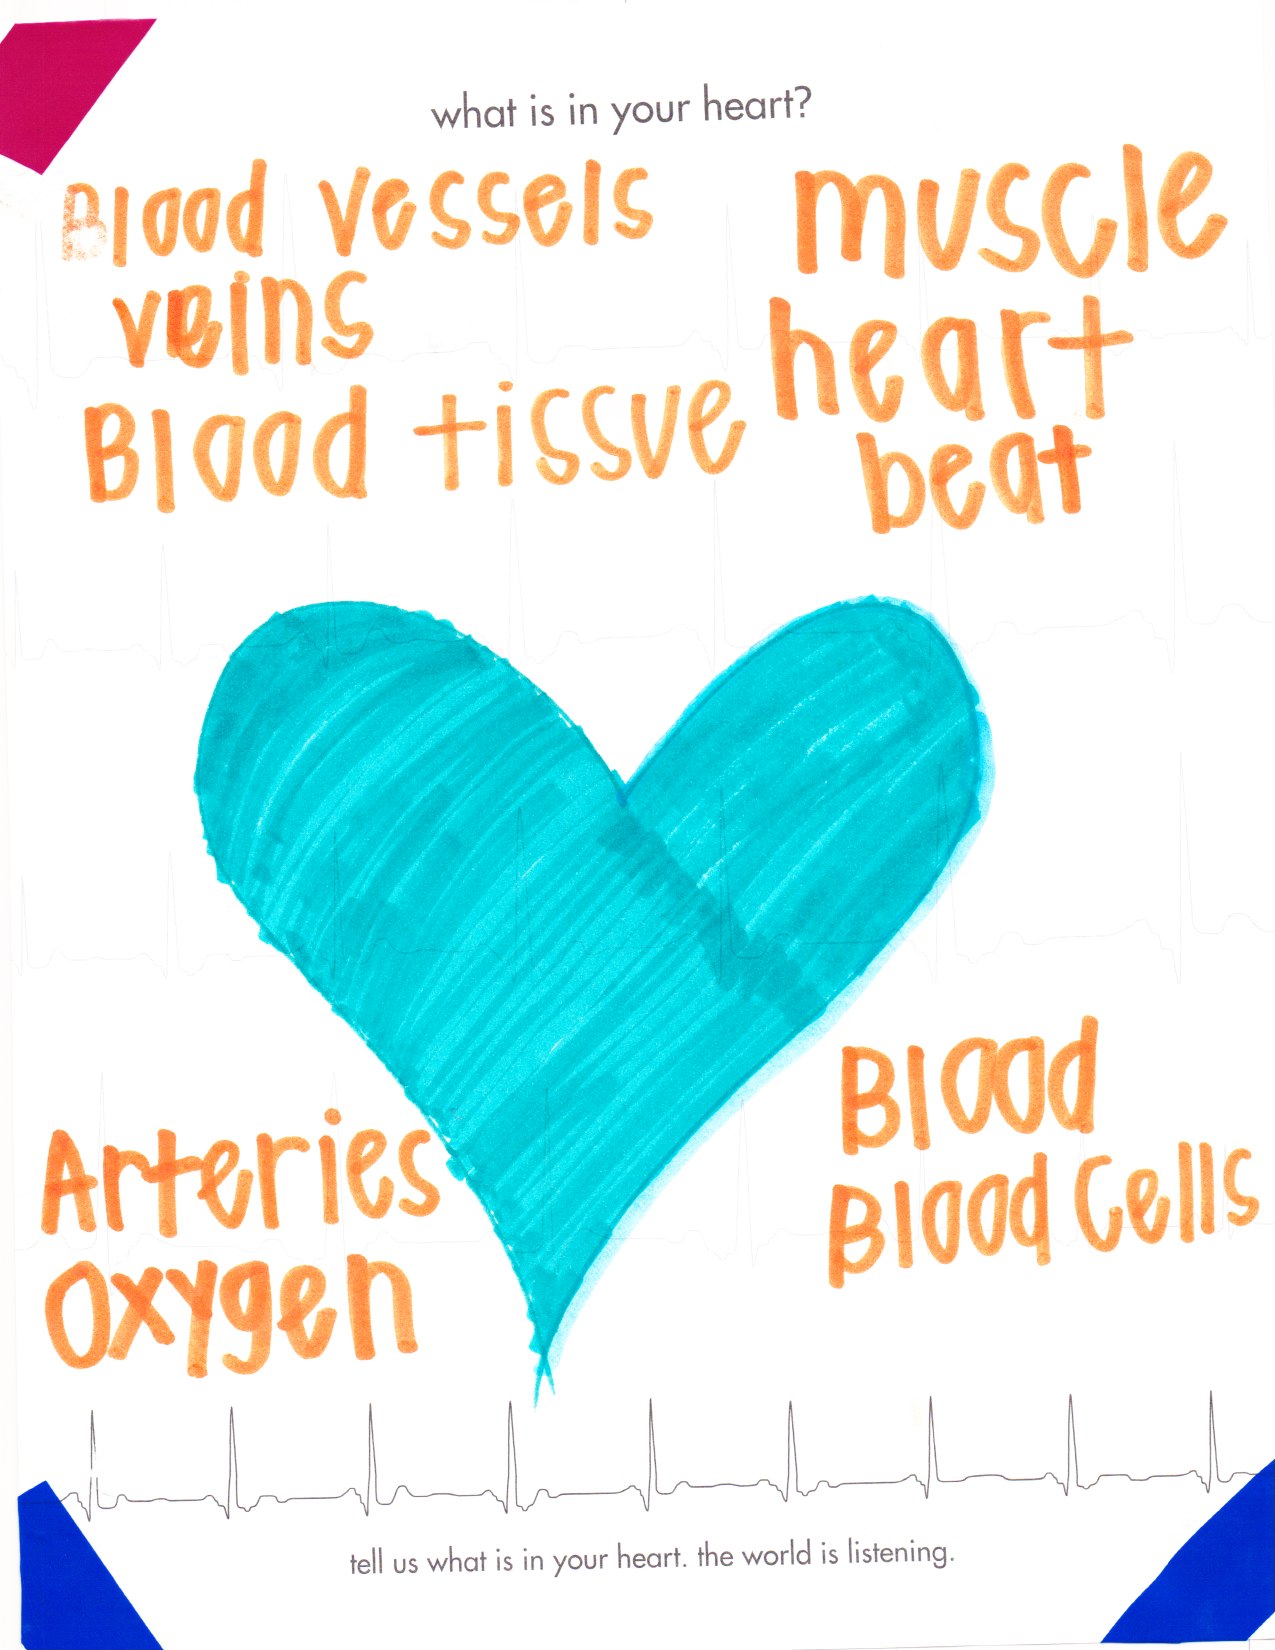 what is in your heart?
Blood vessels
veins
Blood tissue
muscle
heart
beat
Arteries
Oxygen
Blood
Blood Cells
tell us what is in your heart. the world is listening.